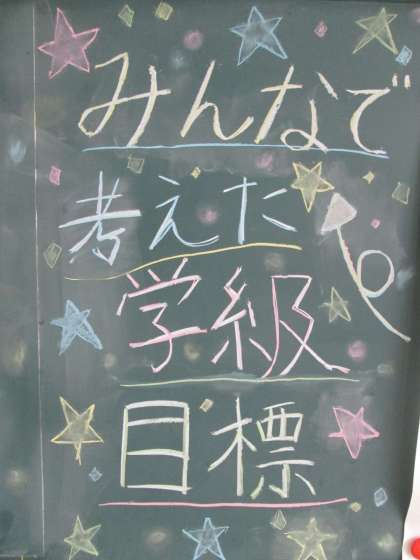 みんなで
考えた
学級
目標